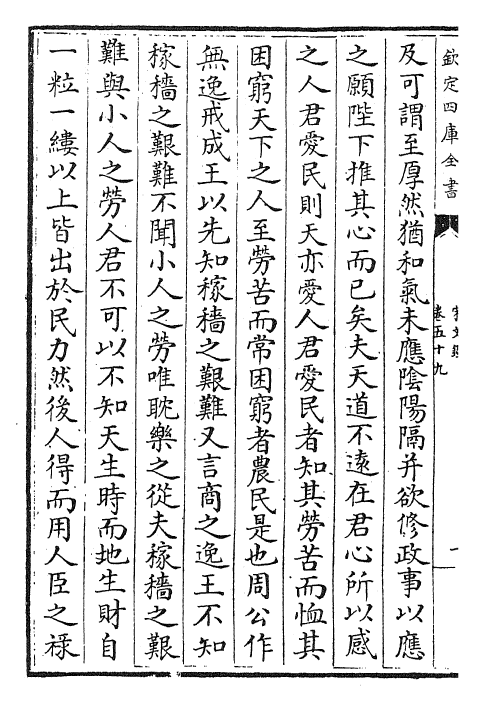 欽定四庫全書
卷五十九
及可謂至厚然猶和氣未應陰陽隔并欲修政事以應
之願陛下推其心而已矣夫天道不遠在君心所以感
之人君愛民則天亦愛人君愛民者知其勞苦而恤其
困窮天下之人至勞苦而常困窮者農民是也周公作
無逸戒成王以先知稼穡之艱難又言商之逸王不知
稼穡之艱難不聞小人之勞唯耽樂之從夫稼穡之艱
難與小人之勞人君不可以不知天生時而地生財自
一粒一縷以上皆出於民力然後人得而用人臣之祿